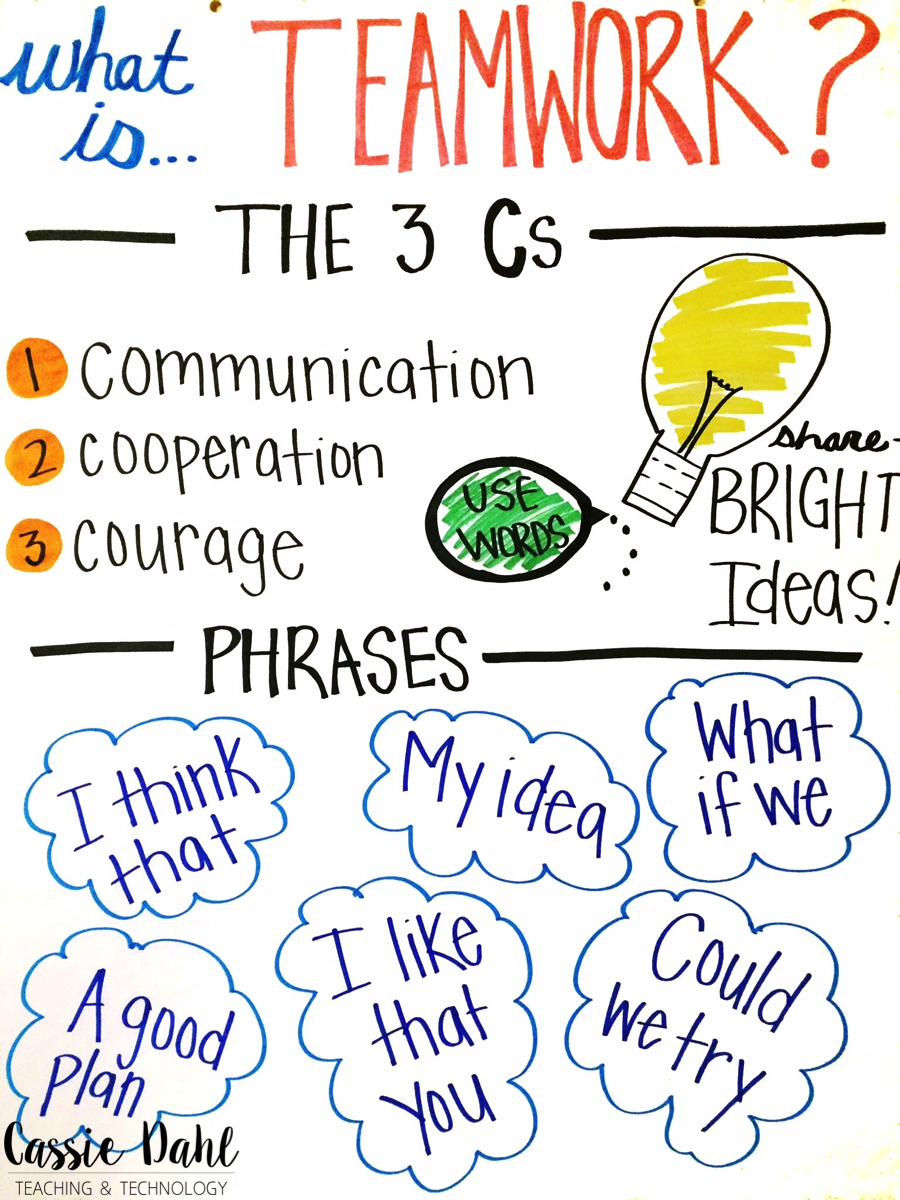 what
is...
TEAMWORK?
THE 3 Cs
1 communication
2 cooperation
3 courage
USE
WORDS
share
BRIGHT
Ideas!
PHRASES
I think
that
My idea
What
if we
A good
Plan
I like
that
you
Could
we try
Cassie Dahl
TEACHING & TECHNOLOGY